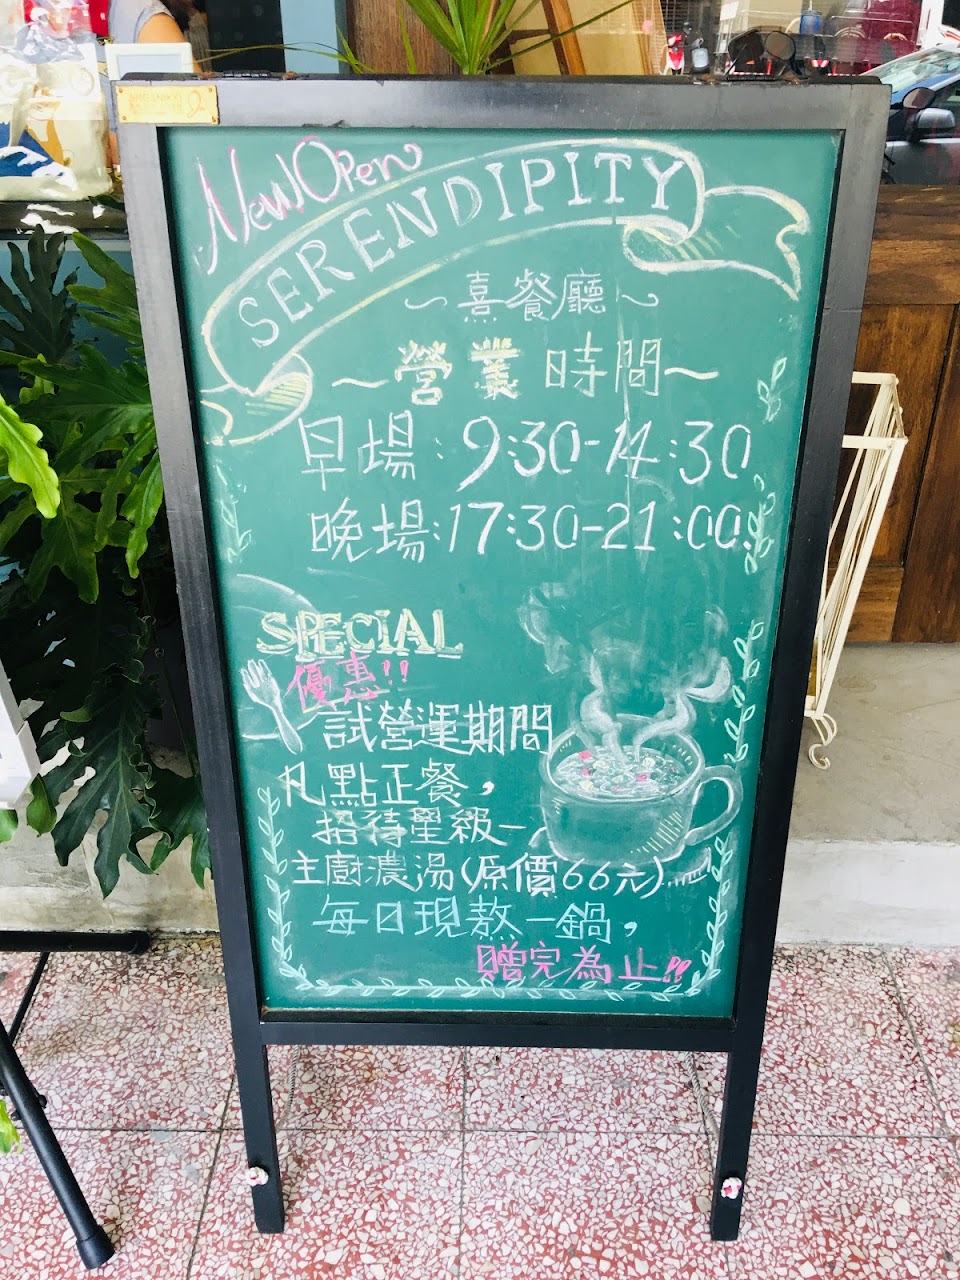 Now Open
SERENDIPITY
~熹餐廳~
~營業時間~
早場:9:30-14:30
晚場:17:30-21:00
SPECIAL
優惠!!
試營運期間
凡點正餐,
招待星級一
主廚濃湯(原價66元)
每日現熬一鍋,
贈完為止!!